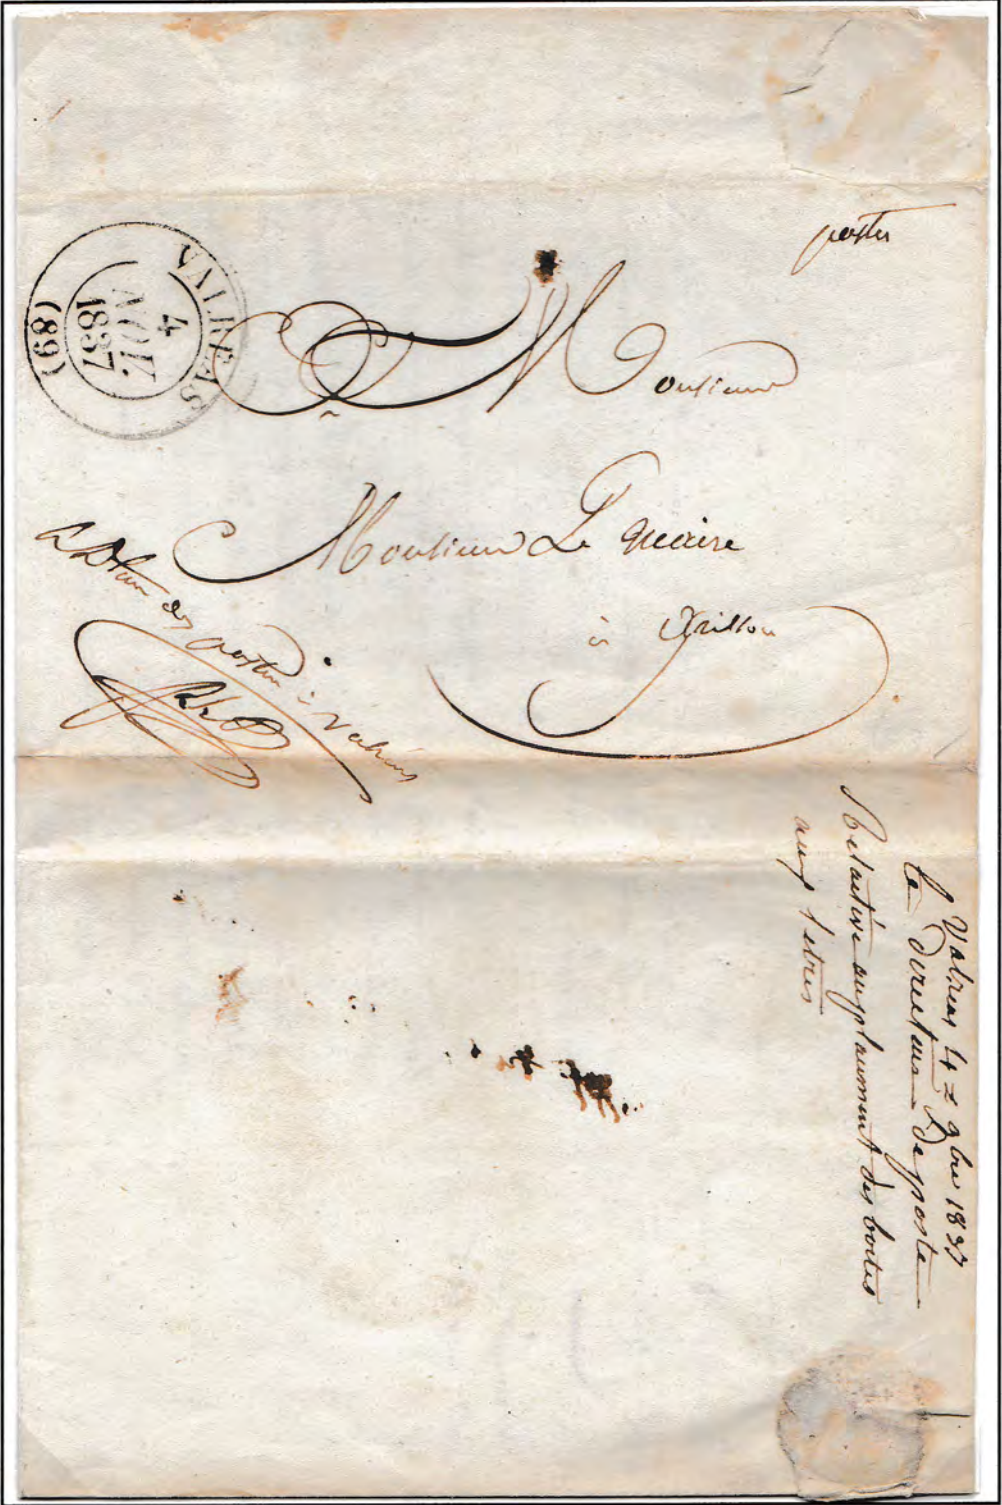 postes
VALREAS
4
NOV.
1837
(89)
Monsieur
Monsieur Le Maire
à Grillon
Le D.teur des postes à Valréas
Valreas le 4 9bre 1837
Le directeur de poste
Relative au placement des boites
aux letres